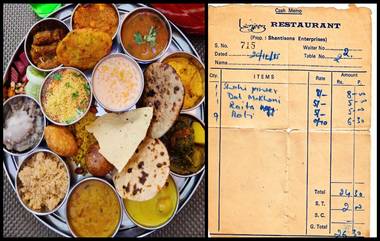 Cash Memo
Lazeez
RESTAURANT
(Prop : Shantisons Enterprises)
S. No. 715 Waiter No.
Date 20/12/85 Table No. 2
Qty. ITEMS Rate Amount
P.
1 Shahi paneer 8/- 8 -
1 Dal Makhani 5/- 5 -
1 Raita 5/- 5 -
9 Roti 0/70 6 30
Total 24 30
S. T. 2 -
S. C. -
G. Total 26 30